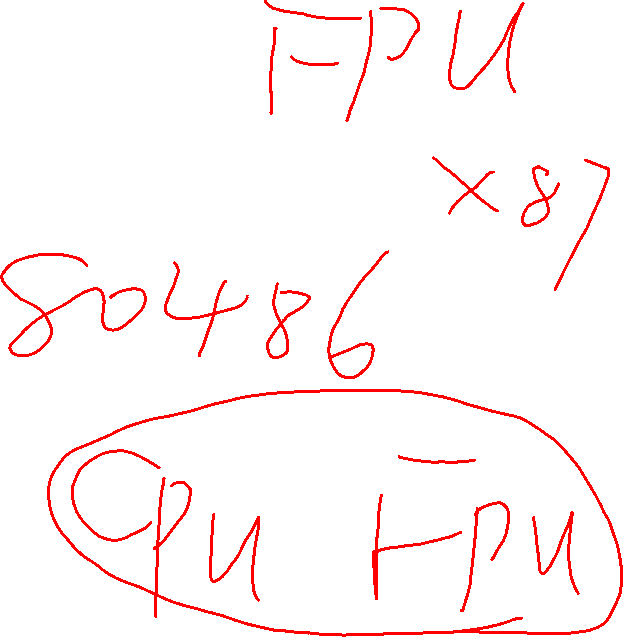 FPU
x87
80486
CPU FPU